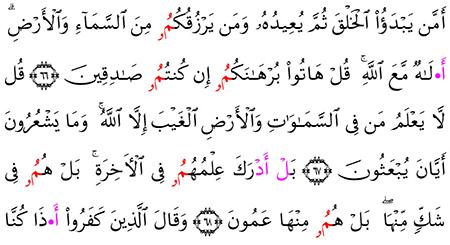 أَمَّن يَبْدَؤُا۟ اُ۬لْخَلْقَ ثُمَّ يُعِيدُهُۥ وَمَن يَرْزُقُكُمُۥ مِنَ اَ۬لسَّمَآءِ وَالْأَرْضِۗ
أَ•لَٰهٌ مَّعَ اَ۬للَّهِۚ قُلْ هَاتُوا۟ بُرْهَٰنَكُمُۥ إِن كُنتُمُۥ صَٰدِقِينَ ٦٦ قُل
لَّا يَعْلَمُ مَن فِى اِ۬لسَّمَٰوَٰتِ وَالْأَرْضِ اِ۬لْغَيْبَ إِلَّا اَ۬للَّهُۚ وَمَا يَشْعُرُونَ
أَيَّانَ يُبْعَثُونَ ٦٧ بَلْ أَدْرَكَ عِلْمُهُمُۥ فِى اِ۬لْأَخِرَةِۚ بَلْ هُمُۥ فِى
شَكٍّ مِّنْهَاۖ بَلْ هُمُۥ مِنْهَا عَمُونَ ٦٨ وَقَالَ اَ۬لَّذِينَ كَفَرُوٓا۟ أَ•ذَا كُنَّا